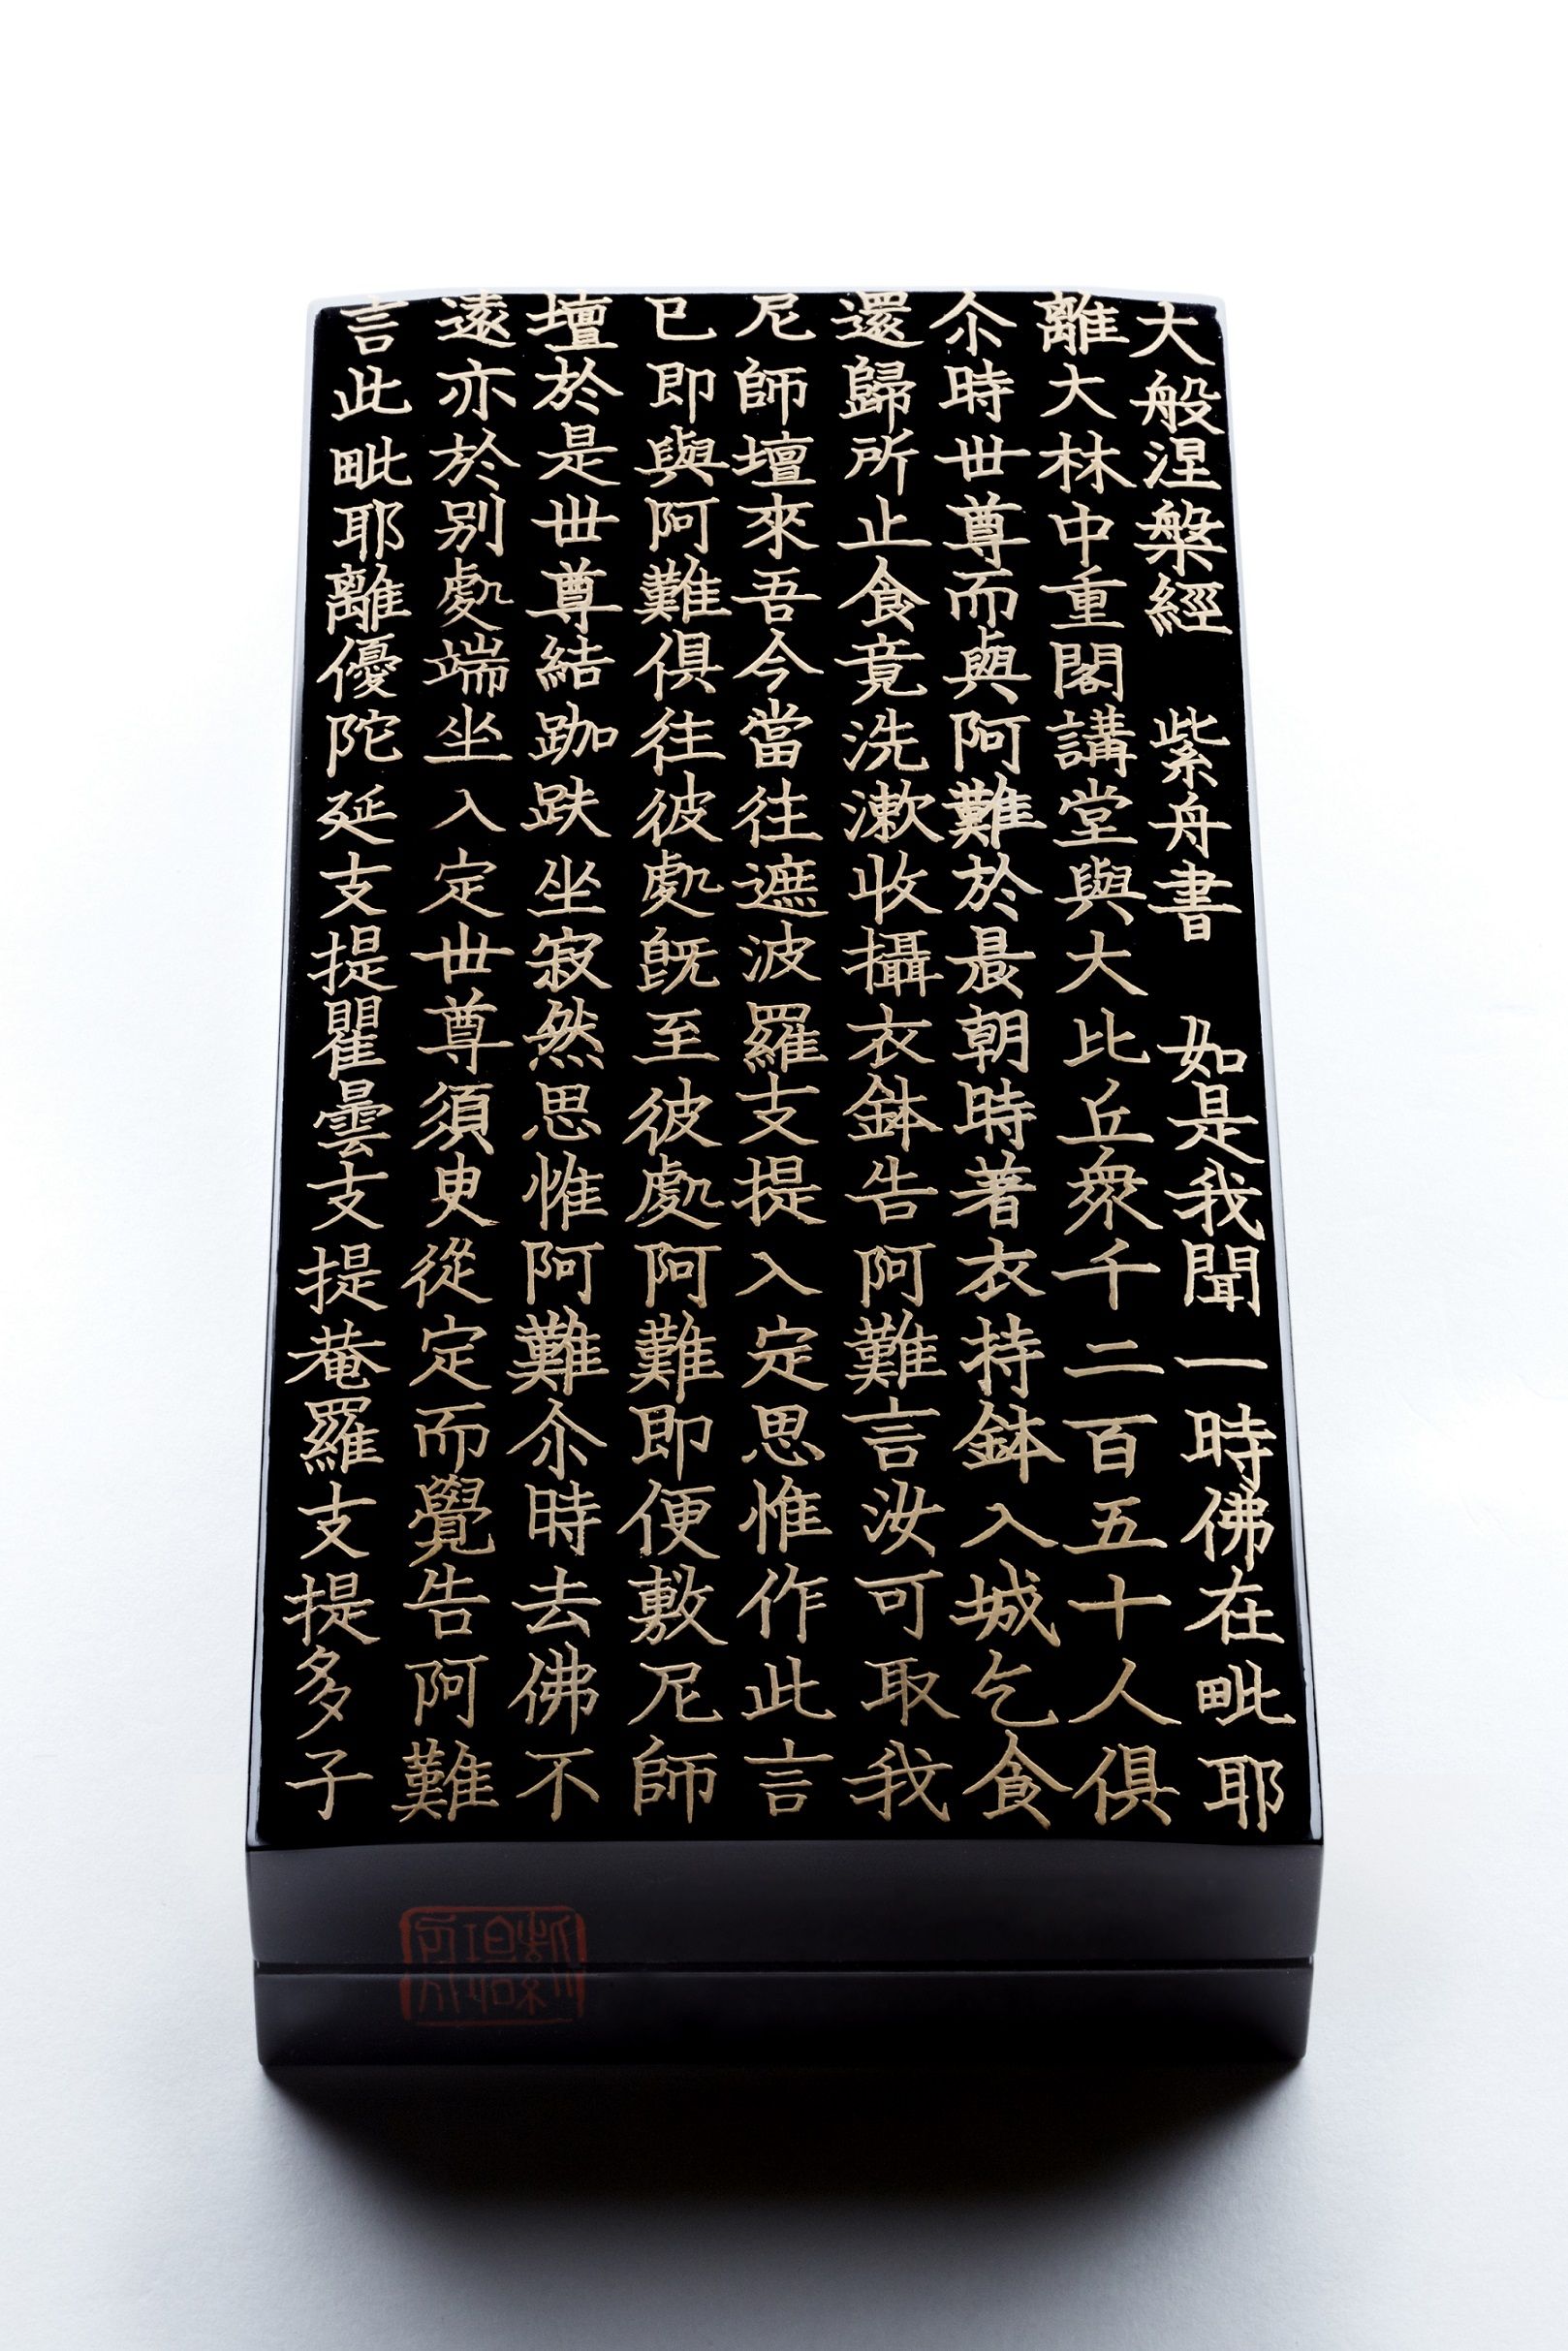 大般涅槃經 紫舟書 如是我聞一時佛在毗耶
離大林中重閣講堂與大比丘衆千二百五十人俱
尒時世尊而與阿難於晨朝時著衣持鉢入城乞食
還歸所止食竟洗漱收攝衣鉢告阿難言汝可取我
尼師壇來吾今當往遮波羅支提入定思惟作此言
已即與阿難俱往彼處既至彼處阿難即便敷尼師
壇於是世尊結跏趺坐寂然思惟阿難尒時去佛不
遠亦於別處端坐入定世尊須臾從定而覺告阿難
言此毗耶離優陀延支提瞿曇支提菴羅支提多子